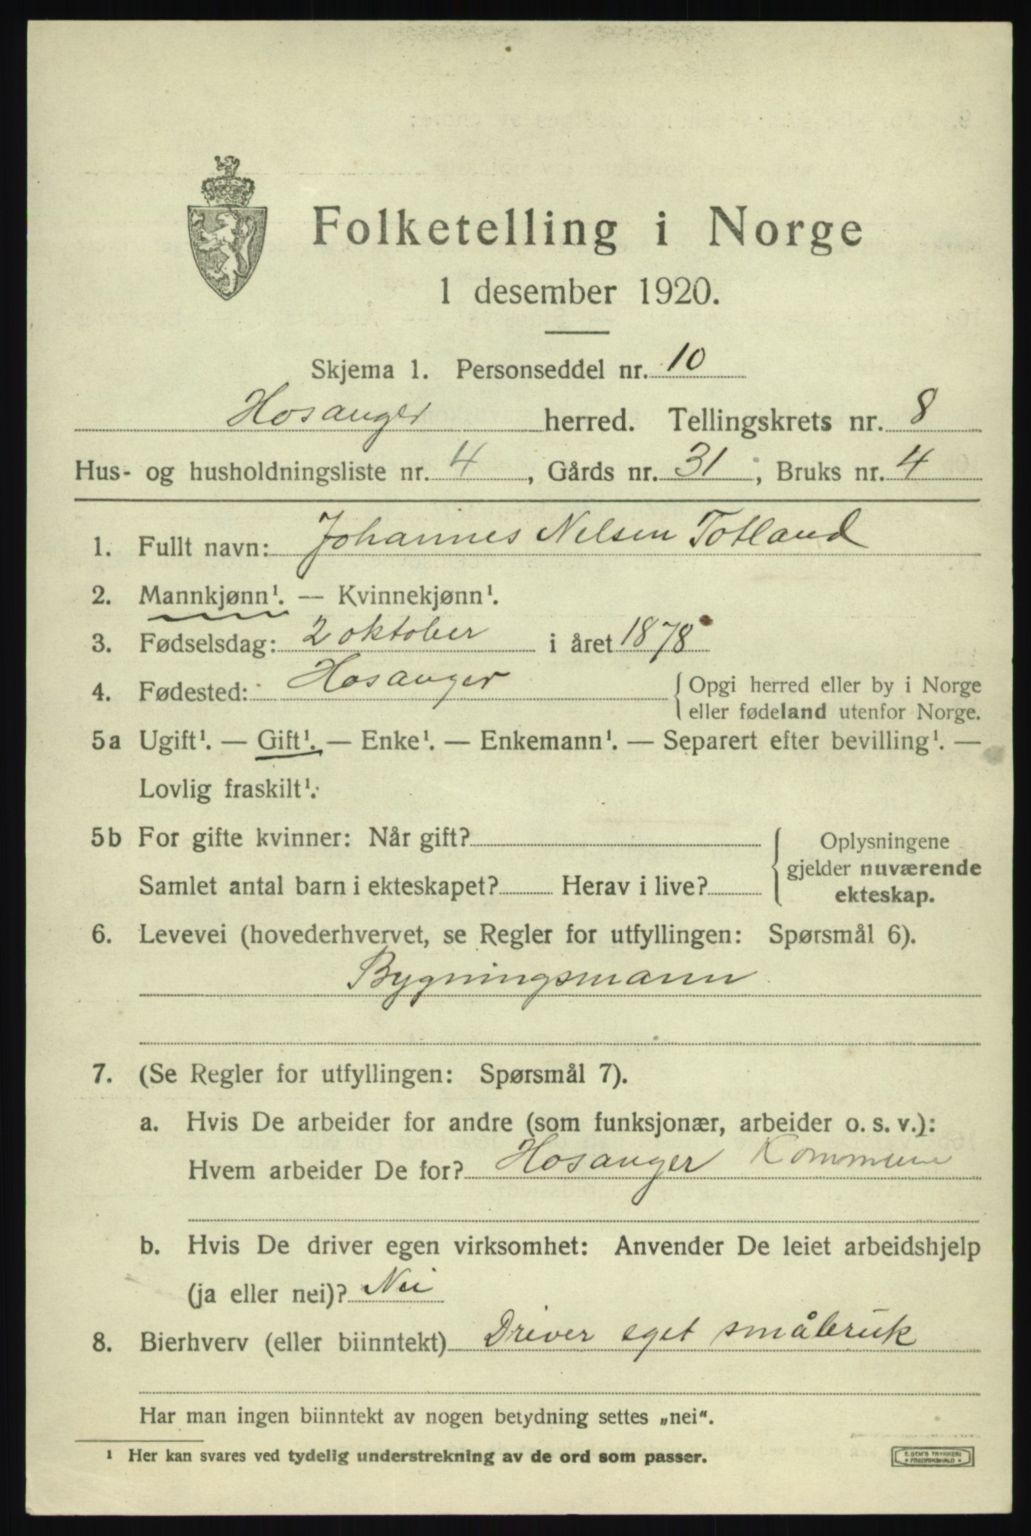 Folketelling i Norge
1 desember 1920.
Skjema 1. Personseddel nr. 10
Hosanger herred. Tellingskrets nr. 8
Hus- og husholdningsliste nr. 4, Gårds nr. 31, Bruks nr. 4
1. Fullt navn: Johannes Nelsen Totland
2. Mannkjønn¹. — Kvinnekjønn¹.
3. Fødselsdag: 2 oktober i året 1878
4. Fødested: Hosanger {Opgi herred eller by i Norge
eller fødeland utenfor Norge.
5a Ugift¹. — Gift¹. — Enke¹. — Enkemann¹. — Separert efter bevilling¹. —
Lovlig fraskilt¹.
5b For gifte kvinner: Når gift? { Oplysningene
gjelder nuværende
Samlet antal barn i ekteskapet? Herav i live? ekteskap.
6. Levevei (hovederhvervet, se Regler for utfyllingen: Spørsmål 6).
Bygningsmann
7. (Se Regler for utfyllingen: Spørsmål 7).
a. Hvis De arbeider for andre (som funksjonær, arbeider o. s. v.):
Hvem arbeider De for? Hosanger Kommune
b. Hvis De driver egen virksomhet: Anvender De leiet arbeidshjelp
(ja eller nei)? Nei
8. Bierhverv (eller biinntekt) Driver eget småbruk
Har man ingen biinntekt av nogen betydning settes „nei".
¹ Her kan svares ved tydelig understrekning av de ord som passer.